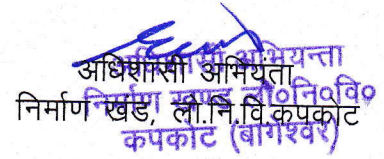 अधिशासी अभियंता
निर्माण खंड, लो.नि.वि.कपकोट
अधिशासी अभियन्ता
निर्माण खण्ड लो०नि०वि०
कपकोट (बागेश्वर)